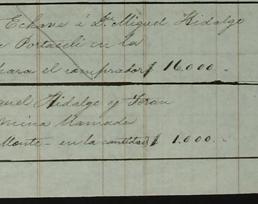 Echave á D. Miguel Hidalgo
Portaceli en la
para el comprador $ 16.000.-
Hidalgo y Teran
mina llamada
Monte - en la cantidad $ 1.000.-